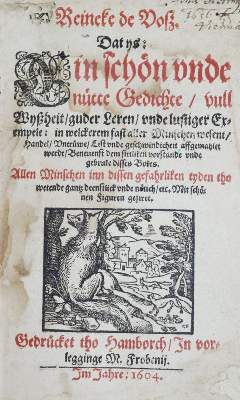 Reineke de Voß.
Dat ys:
Ein schön vnde
nütte Gedichte / vull
Wyßheit / guder Leren / vnde lustiger Ex-
empele: in welckerem fast aller Minschen wesent /
Handel / Vntruwe / List vnde geschwindicheit affgemahlet
werdt / Beneuenst dem sittliken vorstande vnde
gebruke disses Bokes.
Allen Minschen inn dissen gefahrliken tyden tho
wetende gantz deenstlick vnde nütth / etc. Mit schö-
nen Figuren gezieret.
Gedrücket tho Hamborch / In vor-
legginge M. Frobenij.
Im Jahre: 1604.